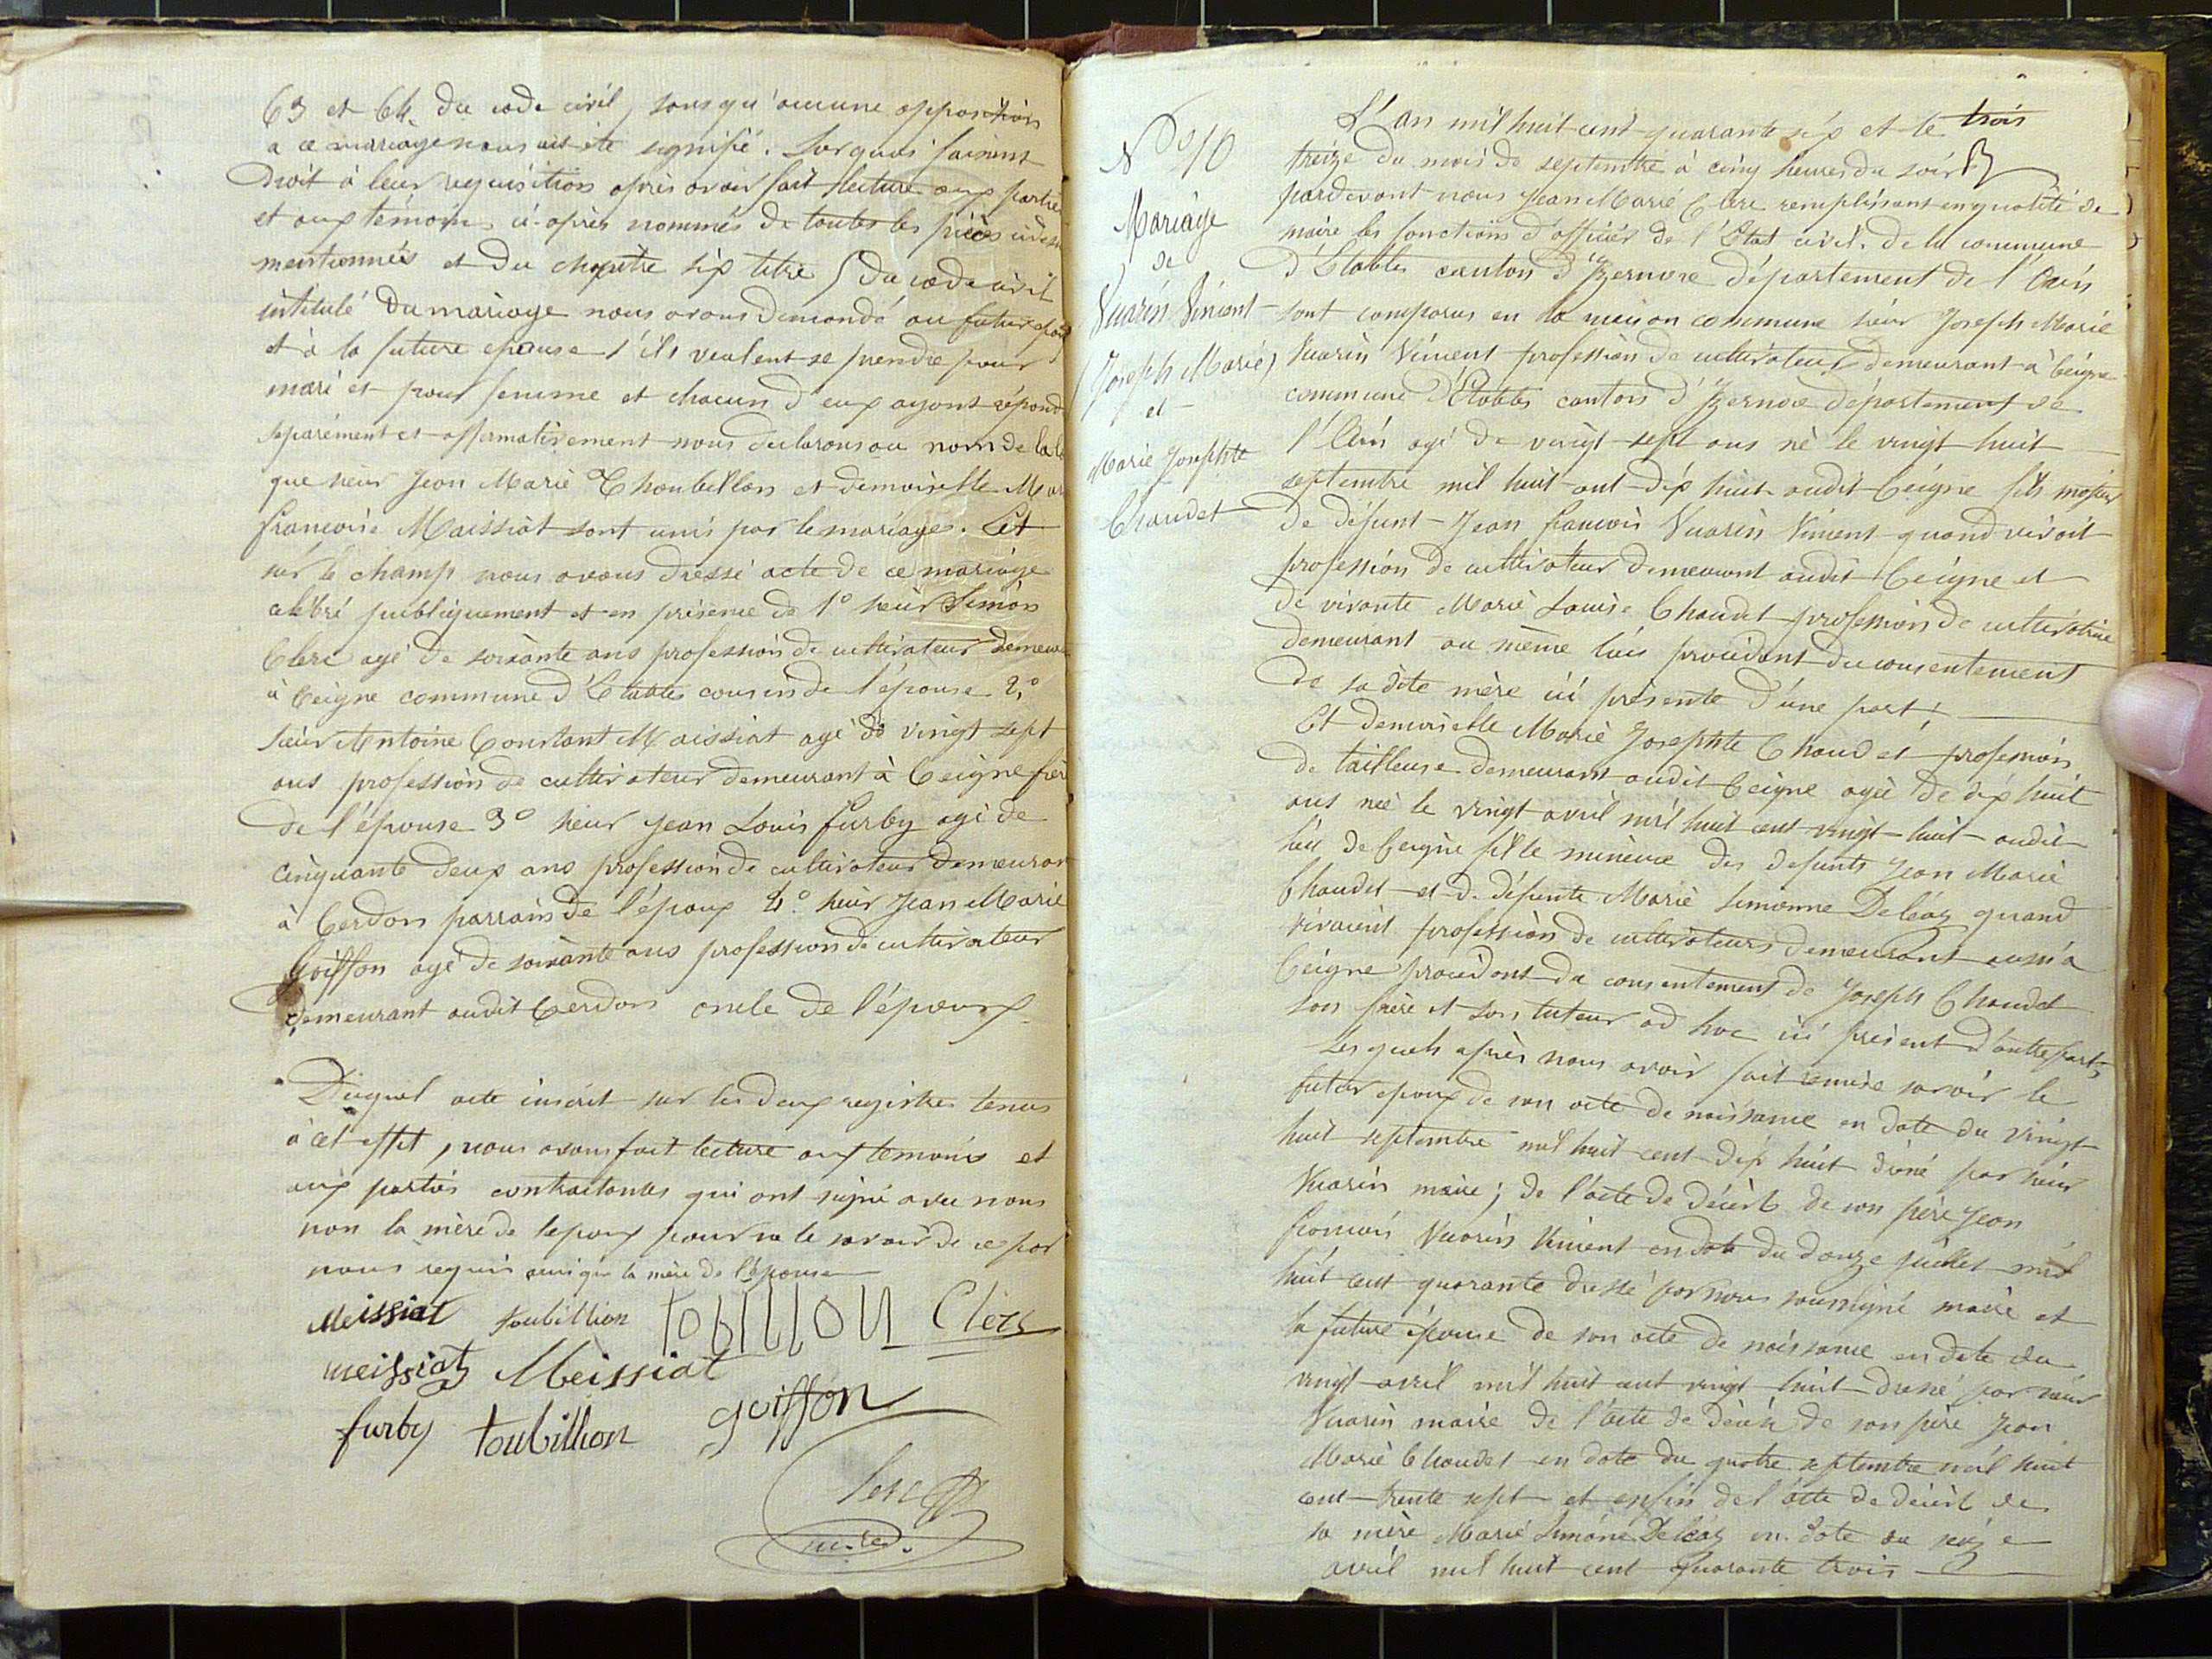 63 et 64 du code civil, sans qu'aucune opposition
a ce mariage nous ait été signifié. Sur quoi faisant
Droit à leur requisition après avoir fait lecture aux parties
et aux témoins ci-après nommés de toutes les pièces
mentionnées et du chapitre six titre 5 du code civil
intitulé Du mariage nous avons demandé au futur
et à la future epouse s'ils veulent se prendre pour
mari et pour femme et chacun d'eux ayant répond
separément et affirmativement nous declarons au nom de la
que sieur Jean Marie Thoubillon et demoiselle Mar
francoise Maissiat sont unis par le mariage. Et
sur le champ nous avons dressé acte de ce mariage
celébré publiquement et en présence de 1° sieur Simon
Clerc agé de soixante ans profession de cultivateur demeur
à Ceigne commune d'Etables cousin de l'épouse 2.°
sieur Antoine Constant Maissiat agé de vingt sept
ans profession de cultivateur demeurant à Ceigne frèr
de l'épouse 3° sieur Jean Louis furby agé de
cinquante deux ans profession de cultivateur demeuran
à Cerdon parrain de l'époux 4.° sieur Jean Marie
Goiffon agé de soixante ans profession de cultivateur
demeurant audit Cerdon oncle de l'époux.
Duquel acte inscrit sur les deux registres tenus
à cet effet, nous avons fait lecture aux temoins et
aux parties contractantes qui ont signé avec nous
non la mère de lepoux pour ne le savoir de ce par
nous requis ainsi que la mère de l'épouse
Meissiat toubillion tobillion Clerc
meissiat Meissiat
furby toubillion goiffon
Clerc
maire.
N° 10
Mariage
de
Vuarin Vincent
(Joseph Marie)
et
Marie Josephte
Chaudet
L'an mil huit cent quarante six et le trois
treize du mois de septembre à cinq heures du soir
pardevant nous Jean Marie Clerc remplissant en qualité de
maire les fonctions d'officier de l'Etat civil de la commune
d'Etables canton d'Izernore département de l'Ain
sont comparus en la maison commune sieur Joseph Marie
Vuarin Vincent profession de cultivateur demeurant à Ceigne
commune d'Etables canton d'Izernore département de
l'Ain agé de vingt sept ans né le vingt huit
septembre mil huit cent dix huit audit Ceigne fils majeur
de défunt Jean francois Vuarin Vincent quand vivait
profession de cultivateur demeurant audit Ceigne et
de vivante Marie Louise Chaudet profession de cultivatrice
demeurant au même lieu procédant du consentement
de sa dite mère ici présente d'une part;
Et demoiselle Marie Josephte Chaudet profession
de tailleuse demeurant audit Ceigne agée de dix huit
ans née le vingt avril mil huit cent vingt huit audit
lieu de Ceigne fille mineure des defunts Jean Marie
Chaudet et de défunte Marie Simonne Deléaz quand
vivaient profession de cultivateurs demeurant aussi à
Ceigne procédant du consentement de Joseph Chaudet
son frère et son tuteur ad hoc ici présent d'autre part;
Lesquels après nous avoir fait remise savoir le
futur epoux de son acte de naissance en date du vingt
huit septembre mil huit cent dix huit signé par sieur
Vuarin maire; de l'acte de décès de son père Jean
francois Vuarin Vincent en date du douze juillet mil
huit cent quarante dressé par nous soussigné maire et
la future épouse de son acte de naissance en date du
vingt avril mil huit cent vingt huit dressé par sieur
Vuarin maire de l'acte de décès de son père Jean
Marie Chaudet en date du quatre septembre mil huit
cent trente sept et enfin de l'acte de décès de
sa mère Marie Simone Deléaz en date du seize
avril mil huit cent quarante trois